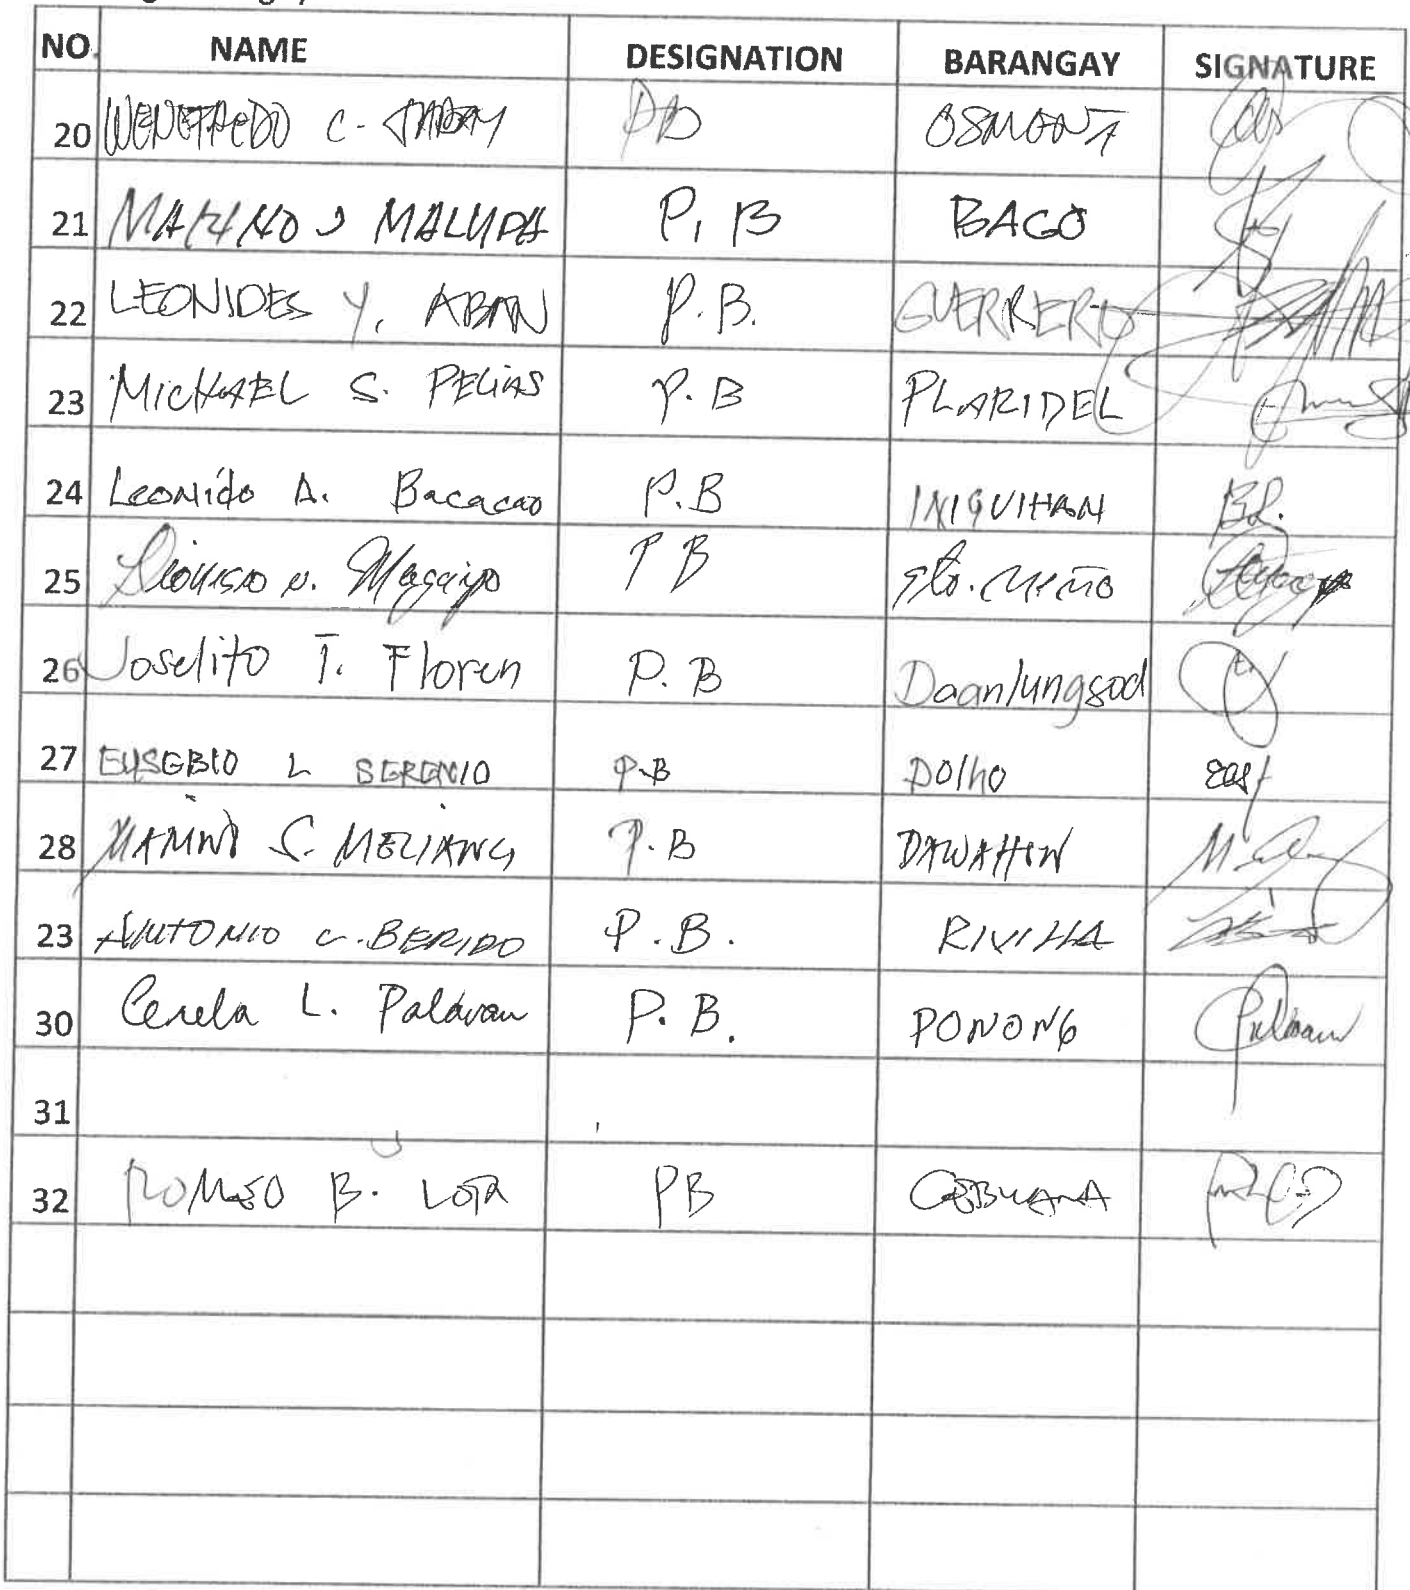 NO. NAME DESIGNATION BARANGAY SIGNATURE
20 WENEFREDO C. PB OSMONT
21 MARINO J MALUPA P. B BAGO
22 LEONIDES Y. ABAN P.B. GUERRERO
23 MICHAEL S. PELIAS P. B PLARIDEL
24 Leonido A. Bacacao P.B INIGUIHAN
25 Dionisio N. Magaipo P B Sto. Niño
26 Joselito T. Floren P. B Daanlungsod
27 EUSEBIO L SERENIO P.B Dolho
28 S. MELIANG P.B DAWAHON
23 ANTONIO C. BERIDO P.B. RIVILLA
30 L. Palawan P. B. PONONG
31
32 ROMEO B. LOR PB CEBUANA